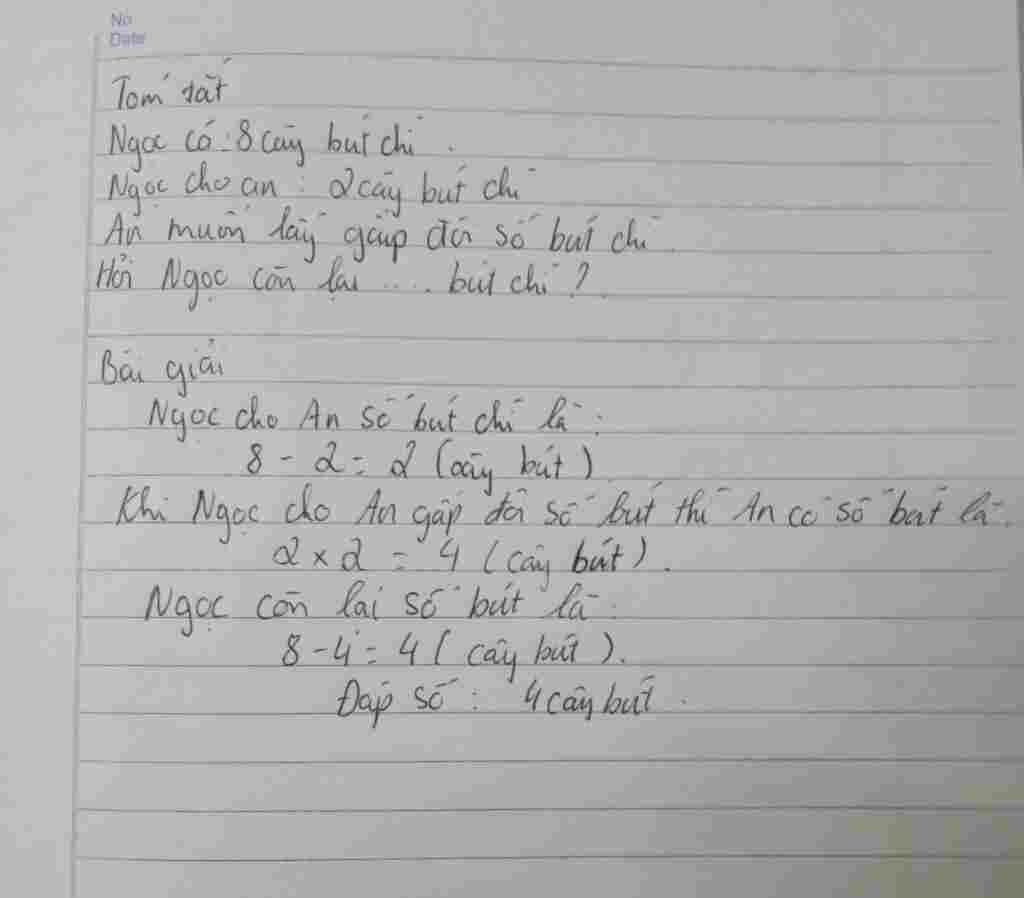 No
Date
Tóm tắt
Ngọc có : 8 cây bút chì .
Ngọc cho an : 2 cây bút chì
An muốn lấy gấp đôi số bút chì .
Hỏi Ngọc còn lại .... bút chì ?
Bài giải
Ngọc cho An số bút chì là :
8 - 2 = 2 (cây bút)
Khi Ngọc cho An gấp đôi số bút thì An có số bút là .
2 x 2 = 4 (cây bút) .
Ngọc còn lại số bút là :
8 - 4 = 4 ( cây bút ).
Đáp số : 4 cây bút .